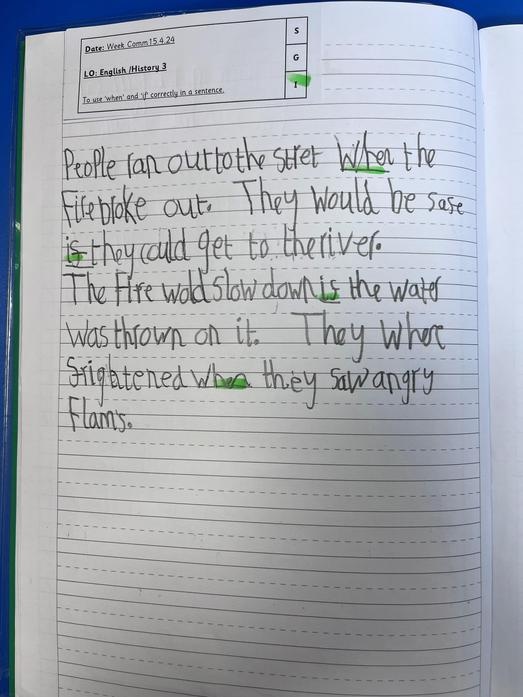 Date: Week Comm 15.4.24
S
LO: English /History 3
G
To use 'when' and 'if' correctly in a sentence.
I
People ran out to the stret When the
Fire broke out. They would be safe
if they could get to the river.
The Fire wold slow down if the water
was thrown on it. They Where
frightened when they saw angry
Flams.